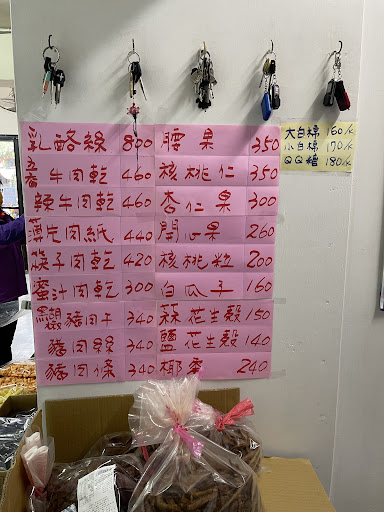 乳酪絲 800
五香牛肉乾 460
辣牛肉乾 460
薄片肉紙 440
筷子肉乾 420
蜜汁肉乾 300
黑胡椒豬肉干 340
豬肉絲 340
豬肉條 340
腰果 350
核桃仁 350
杏仁果 300
開心果 260
核桃粒 200
白瓜子 160
蒜花生殼 150
鹽花生殼 140
椰棗 240
大白棉 160/K
小白棉 170/K
QQ糖 180/K